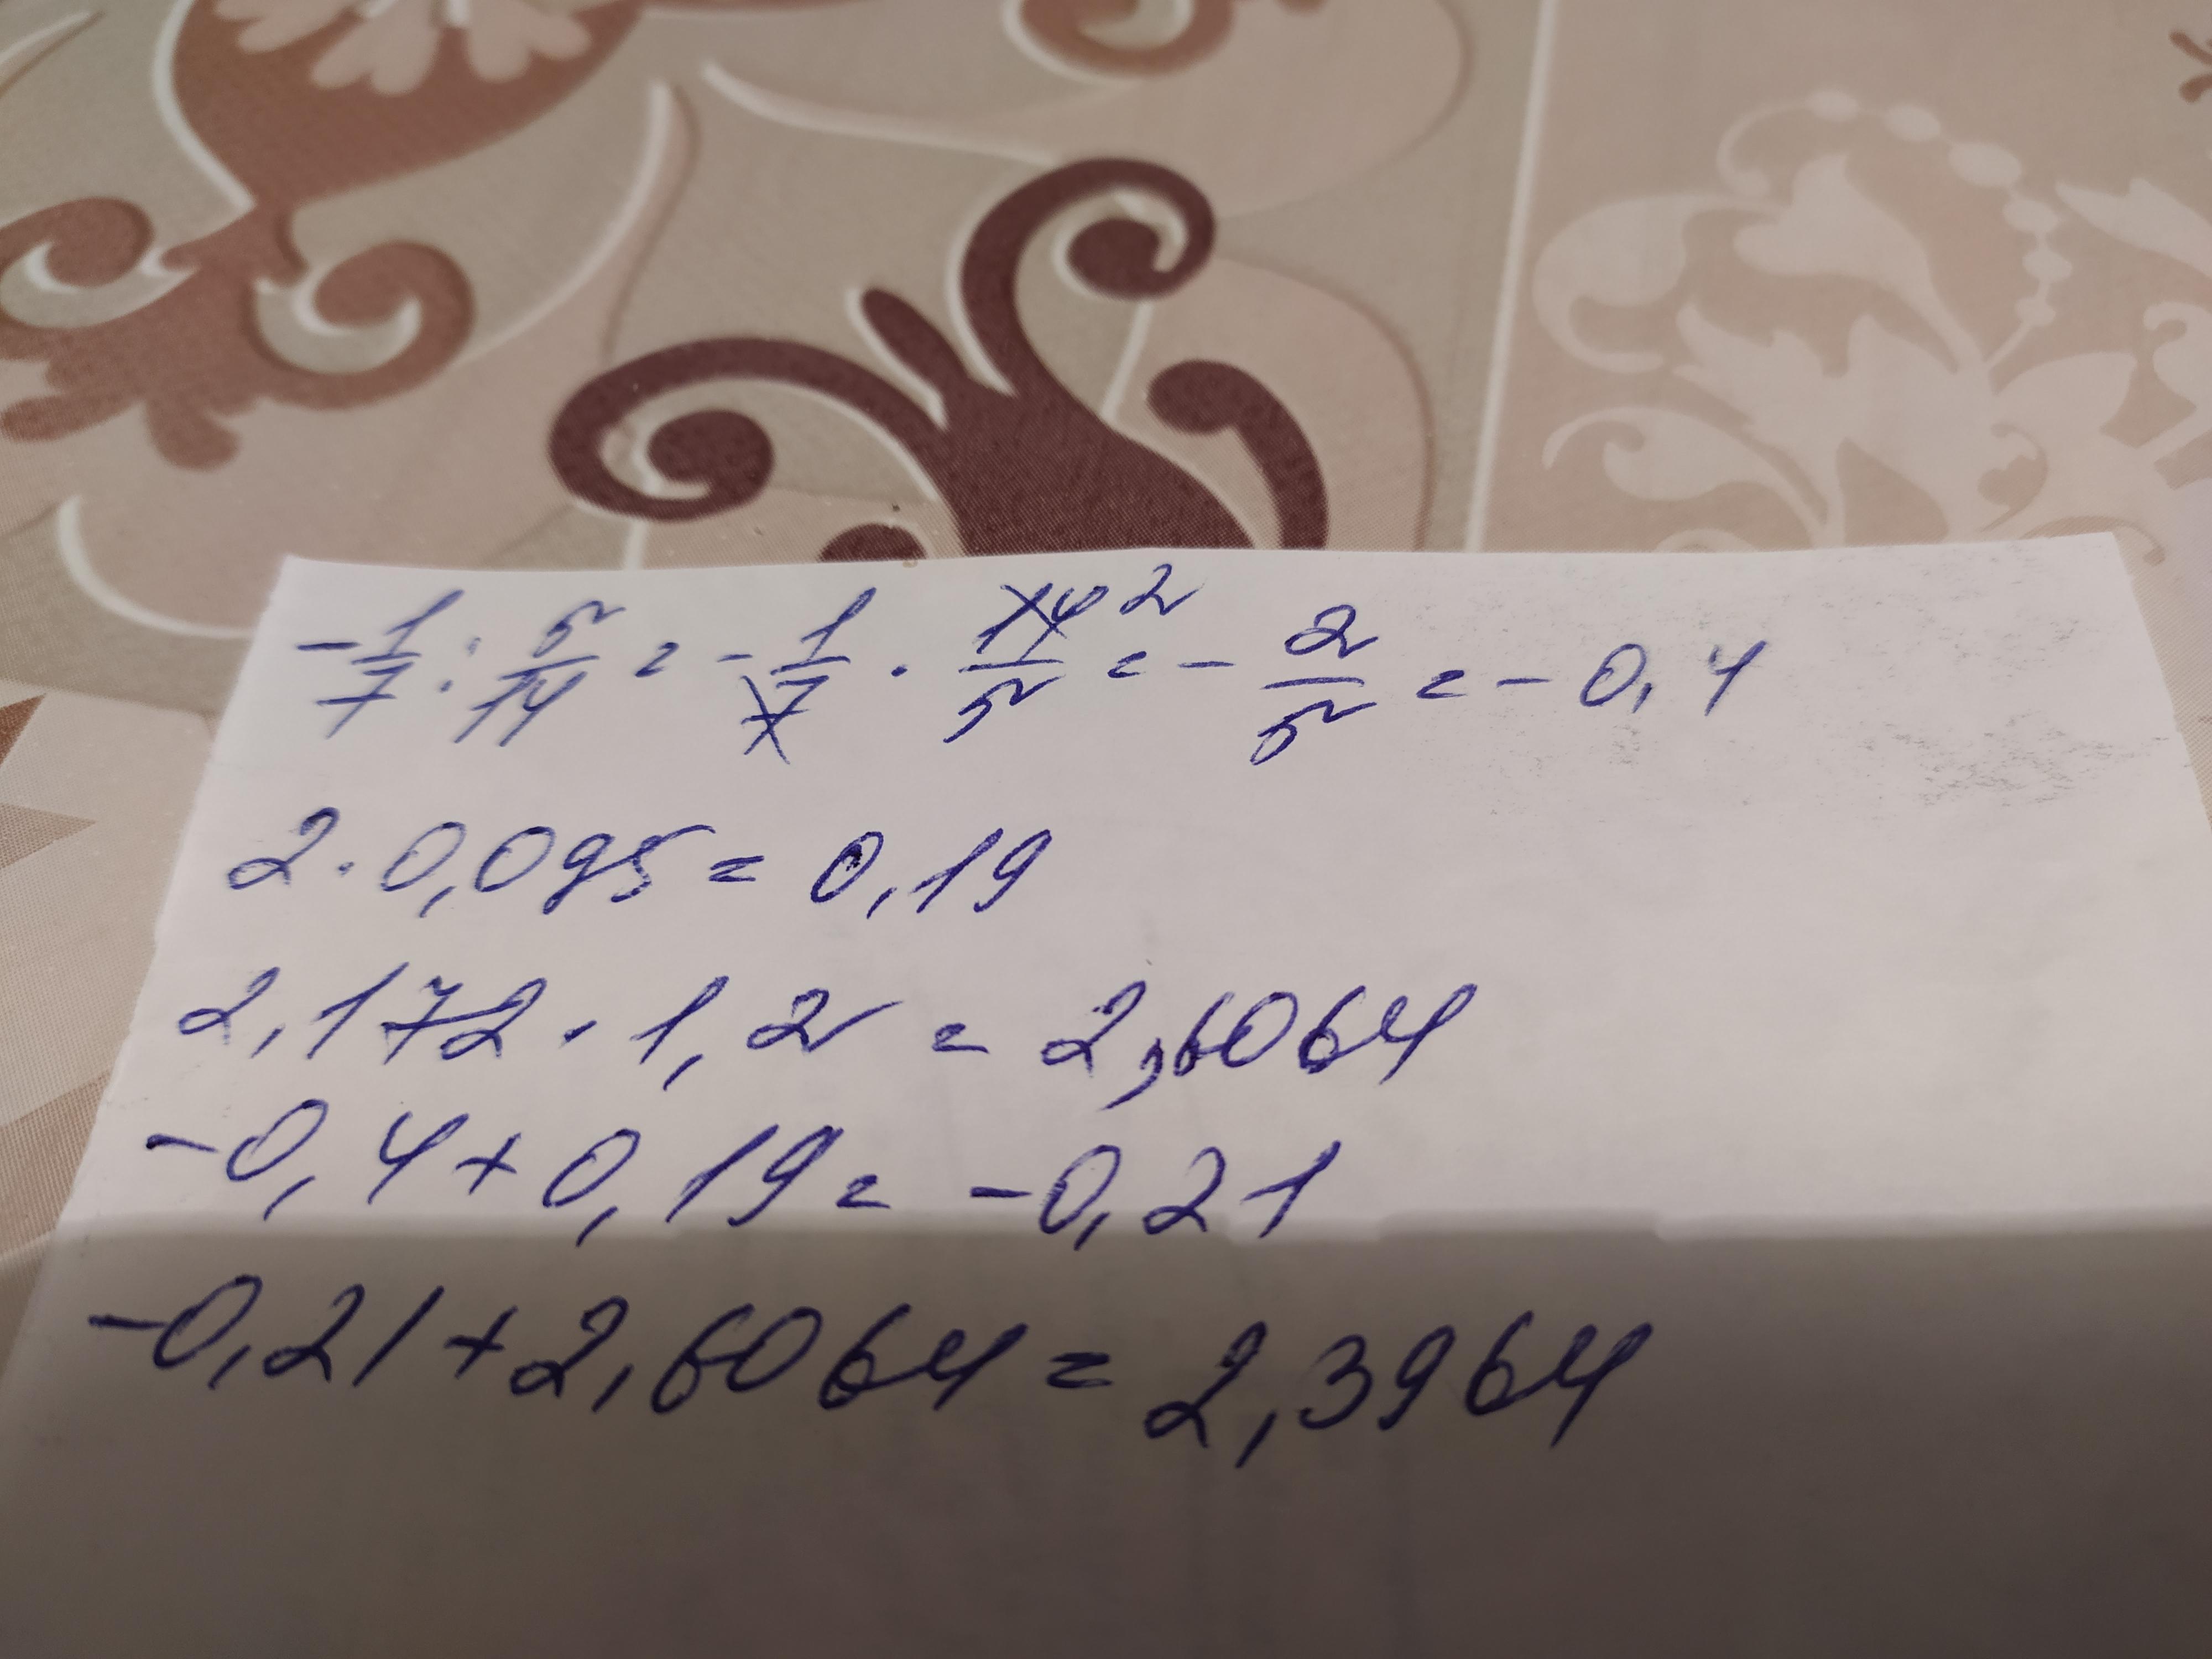 -1/7 : 5/14 = -1/7 · 14/5 2 = - 2/5 = - 0,4
2 · 0,095 = 0,19
2,172 · 1,2 = 2,6064
-0,4 + 0,19 = -0,21
-0,21 + 2,6064 = 2,3964